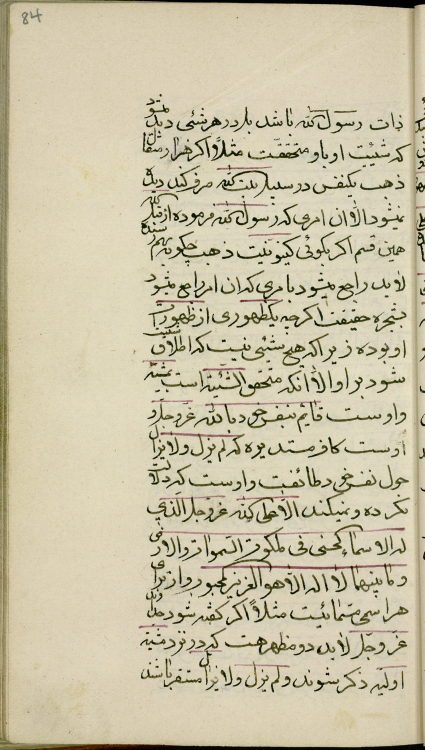 84
ذات رسول الله باشد بل در هر شئی دیده نمیشود
که شیئیت او باو متحققست مثلاً اگر هزار مثقال
ذهب یکنفس در سبیل الله صرف کند دیده
نمیشود الا ان امری که رسول الله فرموده از قبل الله
همین قسم اگر بگوئی کینونیت ذهب چگونه
لابد راجع میشود بامری که ان امر راجع میشود
بشجره حقیقت اگرچه بظهوری از ظهورات
او بوده زیرا که هیچ شئی نیست که اطلاق شیئیت
شود بر او الا انکه متحقق الشیئیة است بمشیته
واوست قایم بنفس خود بالله عز وجل و
اوست کاف مستدیره که لم یزل ولا یزال
حول نفس خود طائفست واوست که دلالت
نکرده و نمیکند الا علی الله عز وجل الذی
له الاسماء الحسنی فی ملکوت السموات والارض
وما بینهما لا اله الا هو العزیز المحبوب و از برای
هر اسمی مسمائیست مثلاً اگر گفته شود
عز وجل لابد دو مظهر هست که در نزد مشیت
اولیه ذکر میشوند ولم یزل ولا یزال مستقر باشد